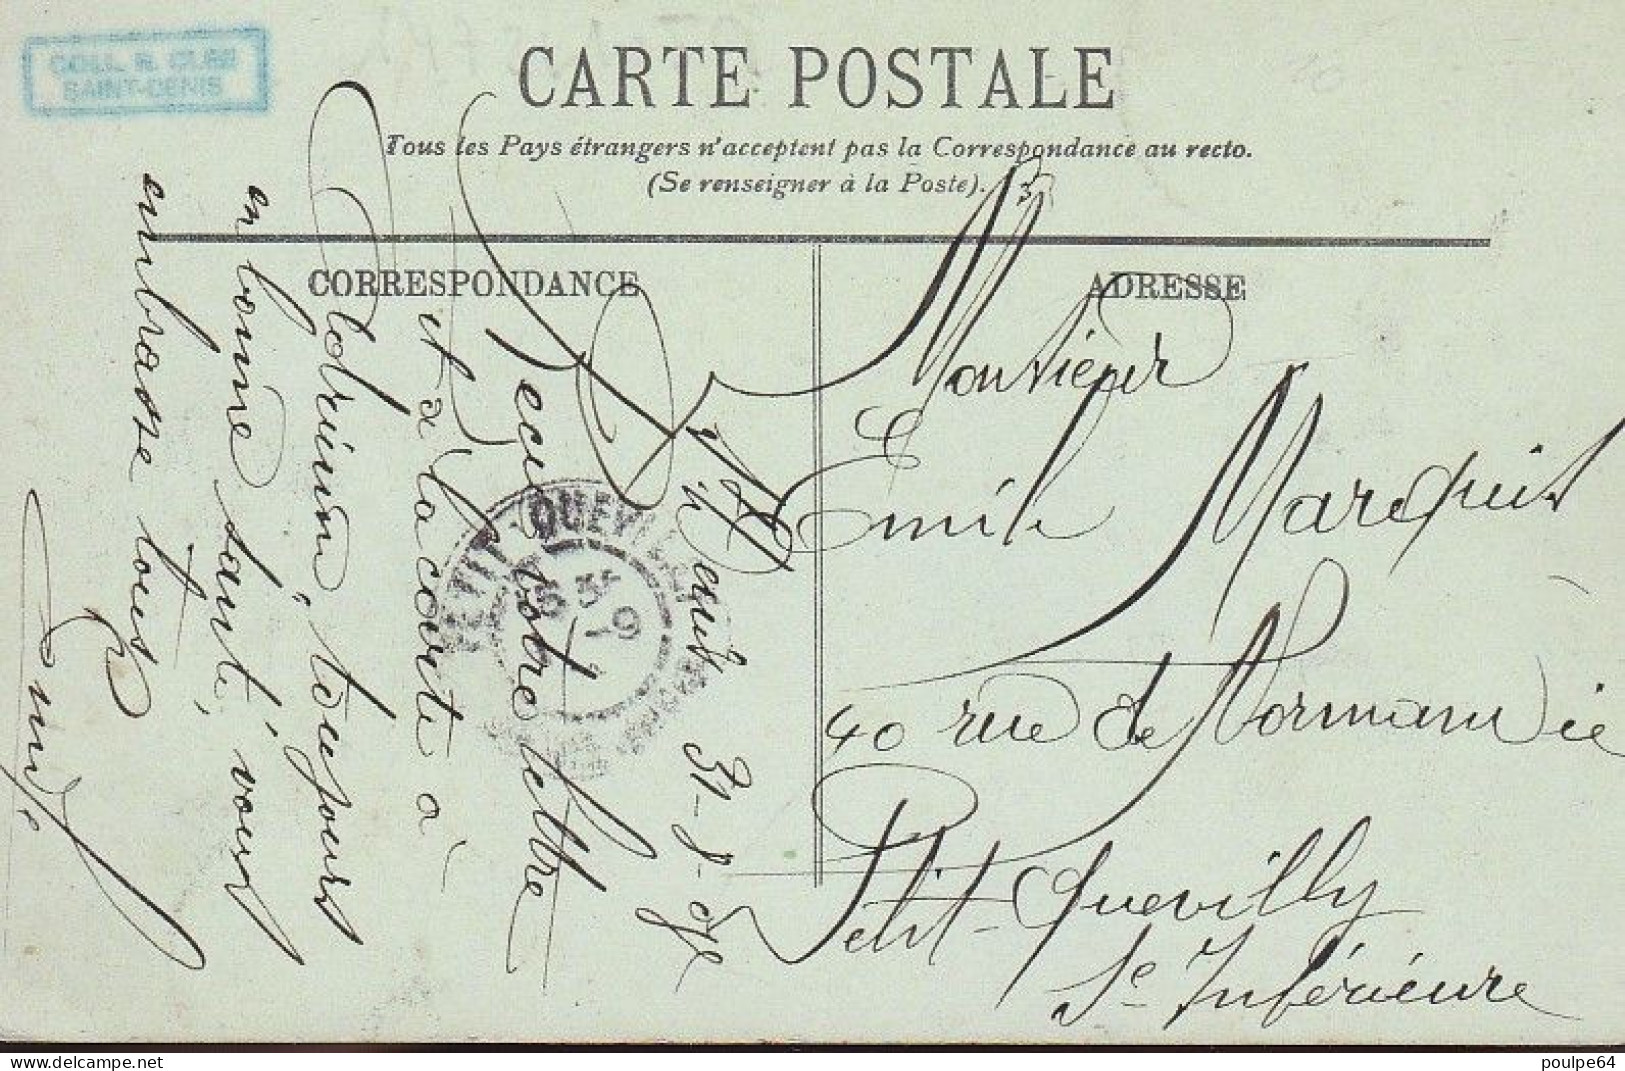 COLL. R. CLES
SAINT-DENIS
CARTE POSTALE
Tous les Pays étrangers n'acceptent pas la Correspondance au recto.
(Se renseigner à la Poste).
CORRESPONDANCE
ADRESSE
St Denis 31-8-07
reçu votre lettre
et à la carte à
toujours
en bonne santé, vous
embrasse tous
Monsieur
Emile Marquis
40 rue de Normandie
Petit-Quevilly
Se Inférieure
PETIT-QUEVILLY
poulpe64